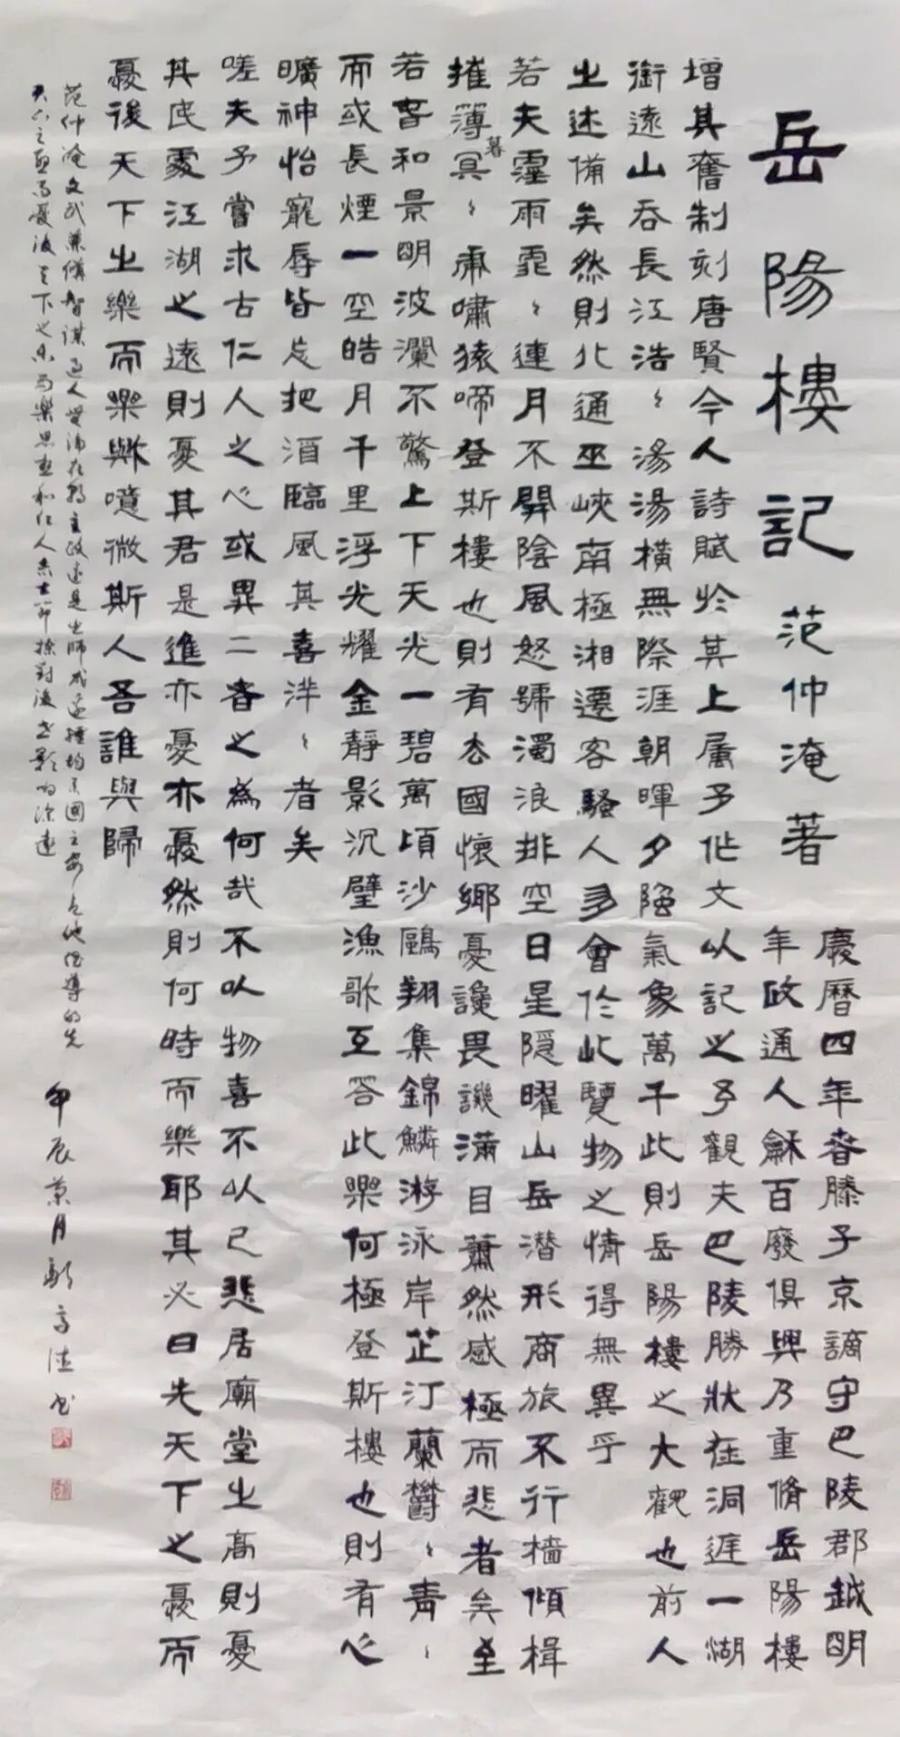 岳陽樓記 范仲淹著
慶曆四年春滕子京謫守巴陵郡越明
年政通人龢百廢俱興乃重脩岳陽樓
增其舊制刻唐賢今人詩賦於其上属予作文以記之予觀夫巴陵勝狀在洞庭一湖
銜遠山吞長江浩〻湯湯橫無際涯朝暉夕陰氣象萬千此則岳陽樓之大觀也前人
之述備矣然則北通巫峽南極湘遷客騷人多會於此覽物之情得無異乎
若夫霪雨霏〻連月不開陰風怒號濁浪排空日星隱曜山岳潛形商旅不行檣傾楫
摧薄暮冥〻虎嘯猿啼登斯樓也則有去國懷鄉憂讒畏譏滿目蕭然感極而悲者矣至
若春和景明波瀾不驚上下天光一碧萬頃沙鷗翔集錦鱗游泳岸芷汀蘭鬱〻青〻
而或長煙一空皓月千里浮光耀金靜影沉璧漁歌互答此樂何極登斯樓也則有心
曠神怡寵辱皆忘把酒臨風其喜洋〻者矣
嗟夫予嘗求古仁人之心或異二者之為何哉不以物喜不以己悲居廟堂之高則憂
其民處江湖之遠則憂其君是進亦憂亦憂然則何時而樂耶其必曰先天下之憂而
憂後天下之樂而樂歟噫微斯人吾誰與歸
范仲淹文武兼備智謀過人無論在朝主政還是出師戍邊均國之安他倡導的先
天下之憂而憂後天下之樂而樂思想和仁人志士節操對後世影响深遠
甲辰 月 書